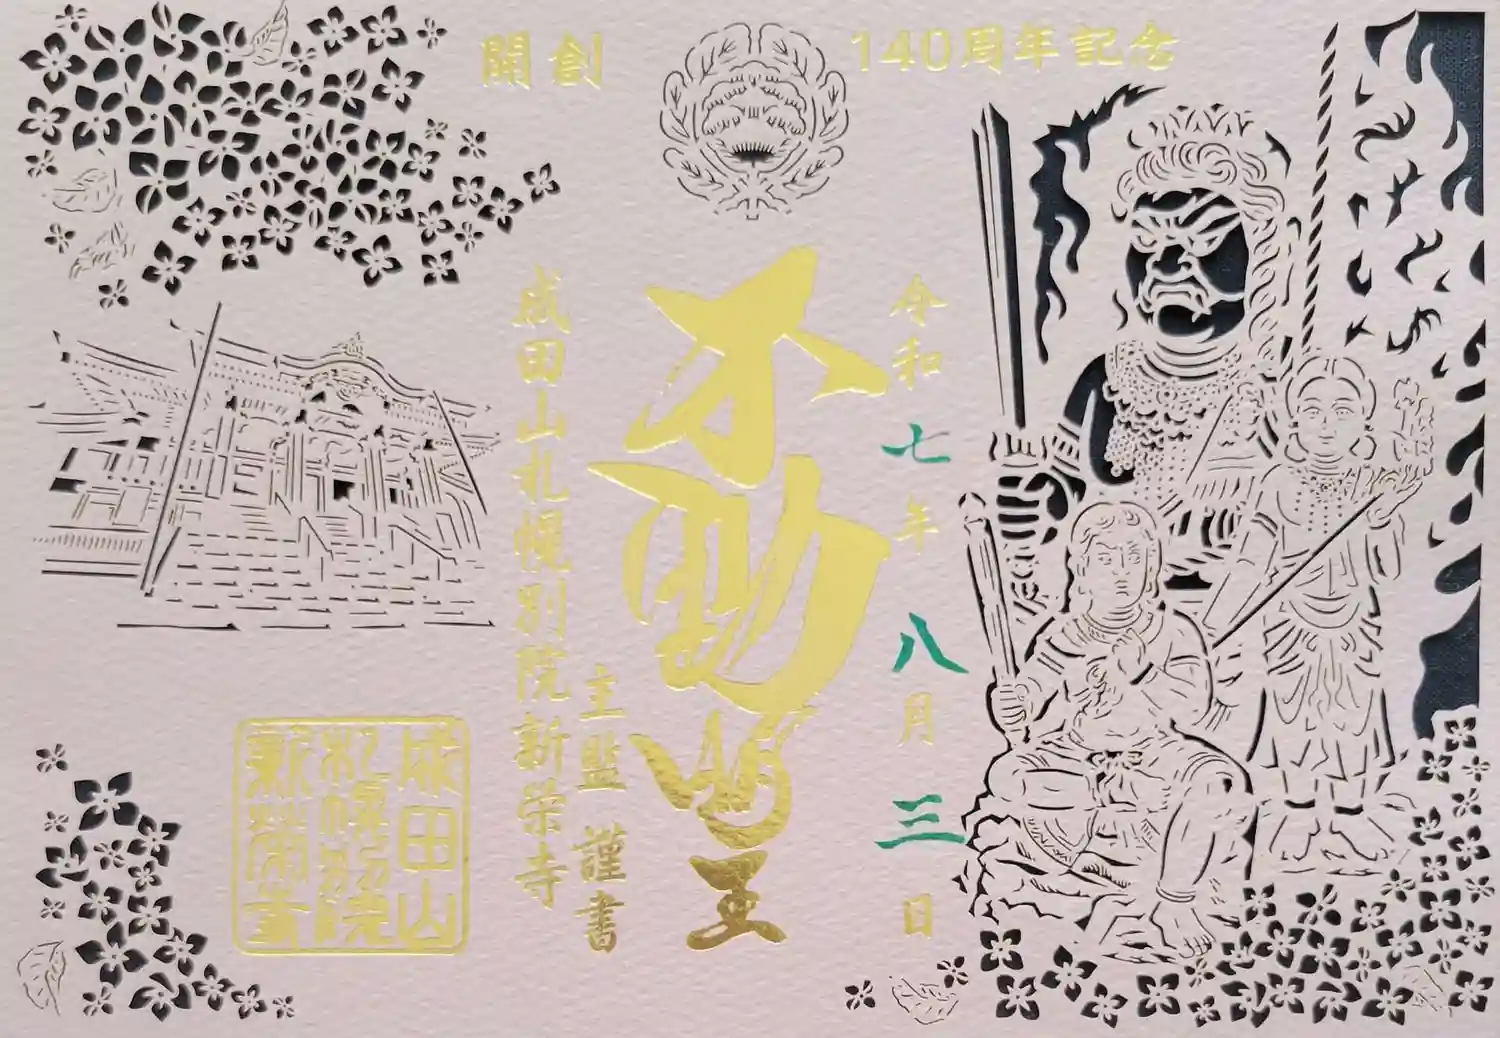 開創 140周年記念
令和七年八月三日
不動明王
主監 謹書
成田山札幌別院新栄寺
成田山
札幌別院
新榮寺